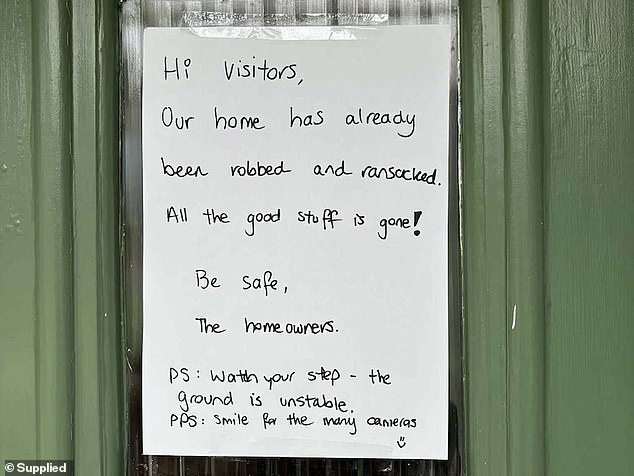 Hi visitors,
Our home has already
been robbed and ransacked.
All the good stuff is gone!
Be safe,
The homeowners.
PS: Watch your step - the
ground is unstable.
PPS: Smile for the many cameras
© Supplied